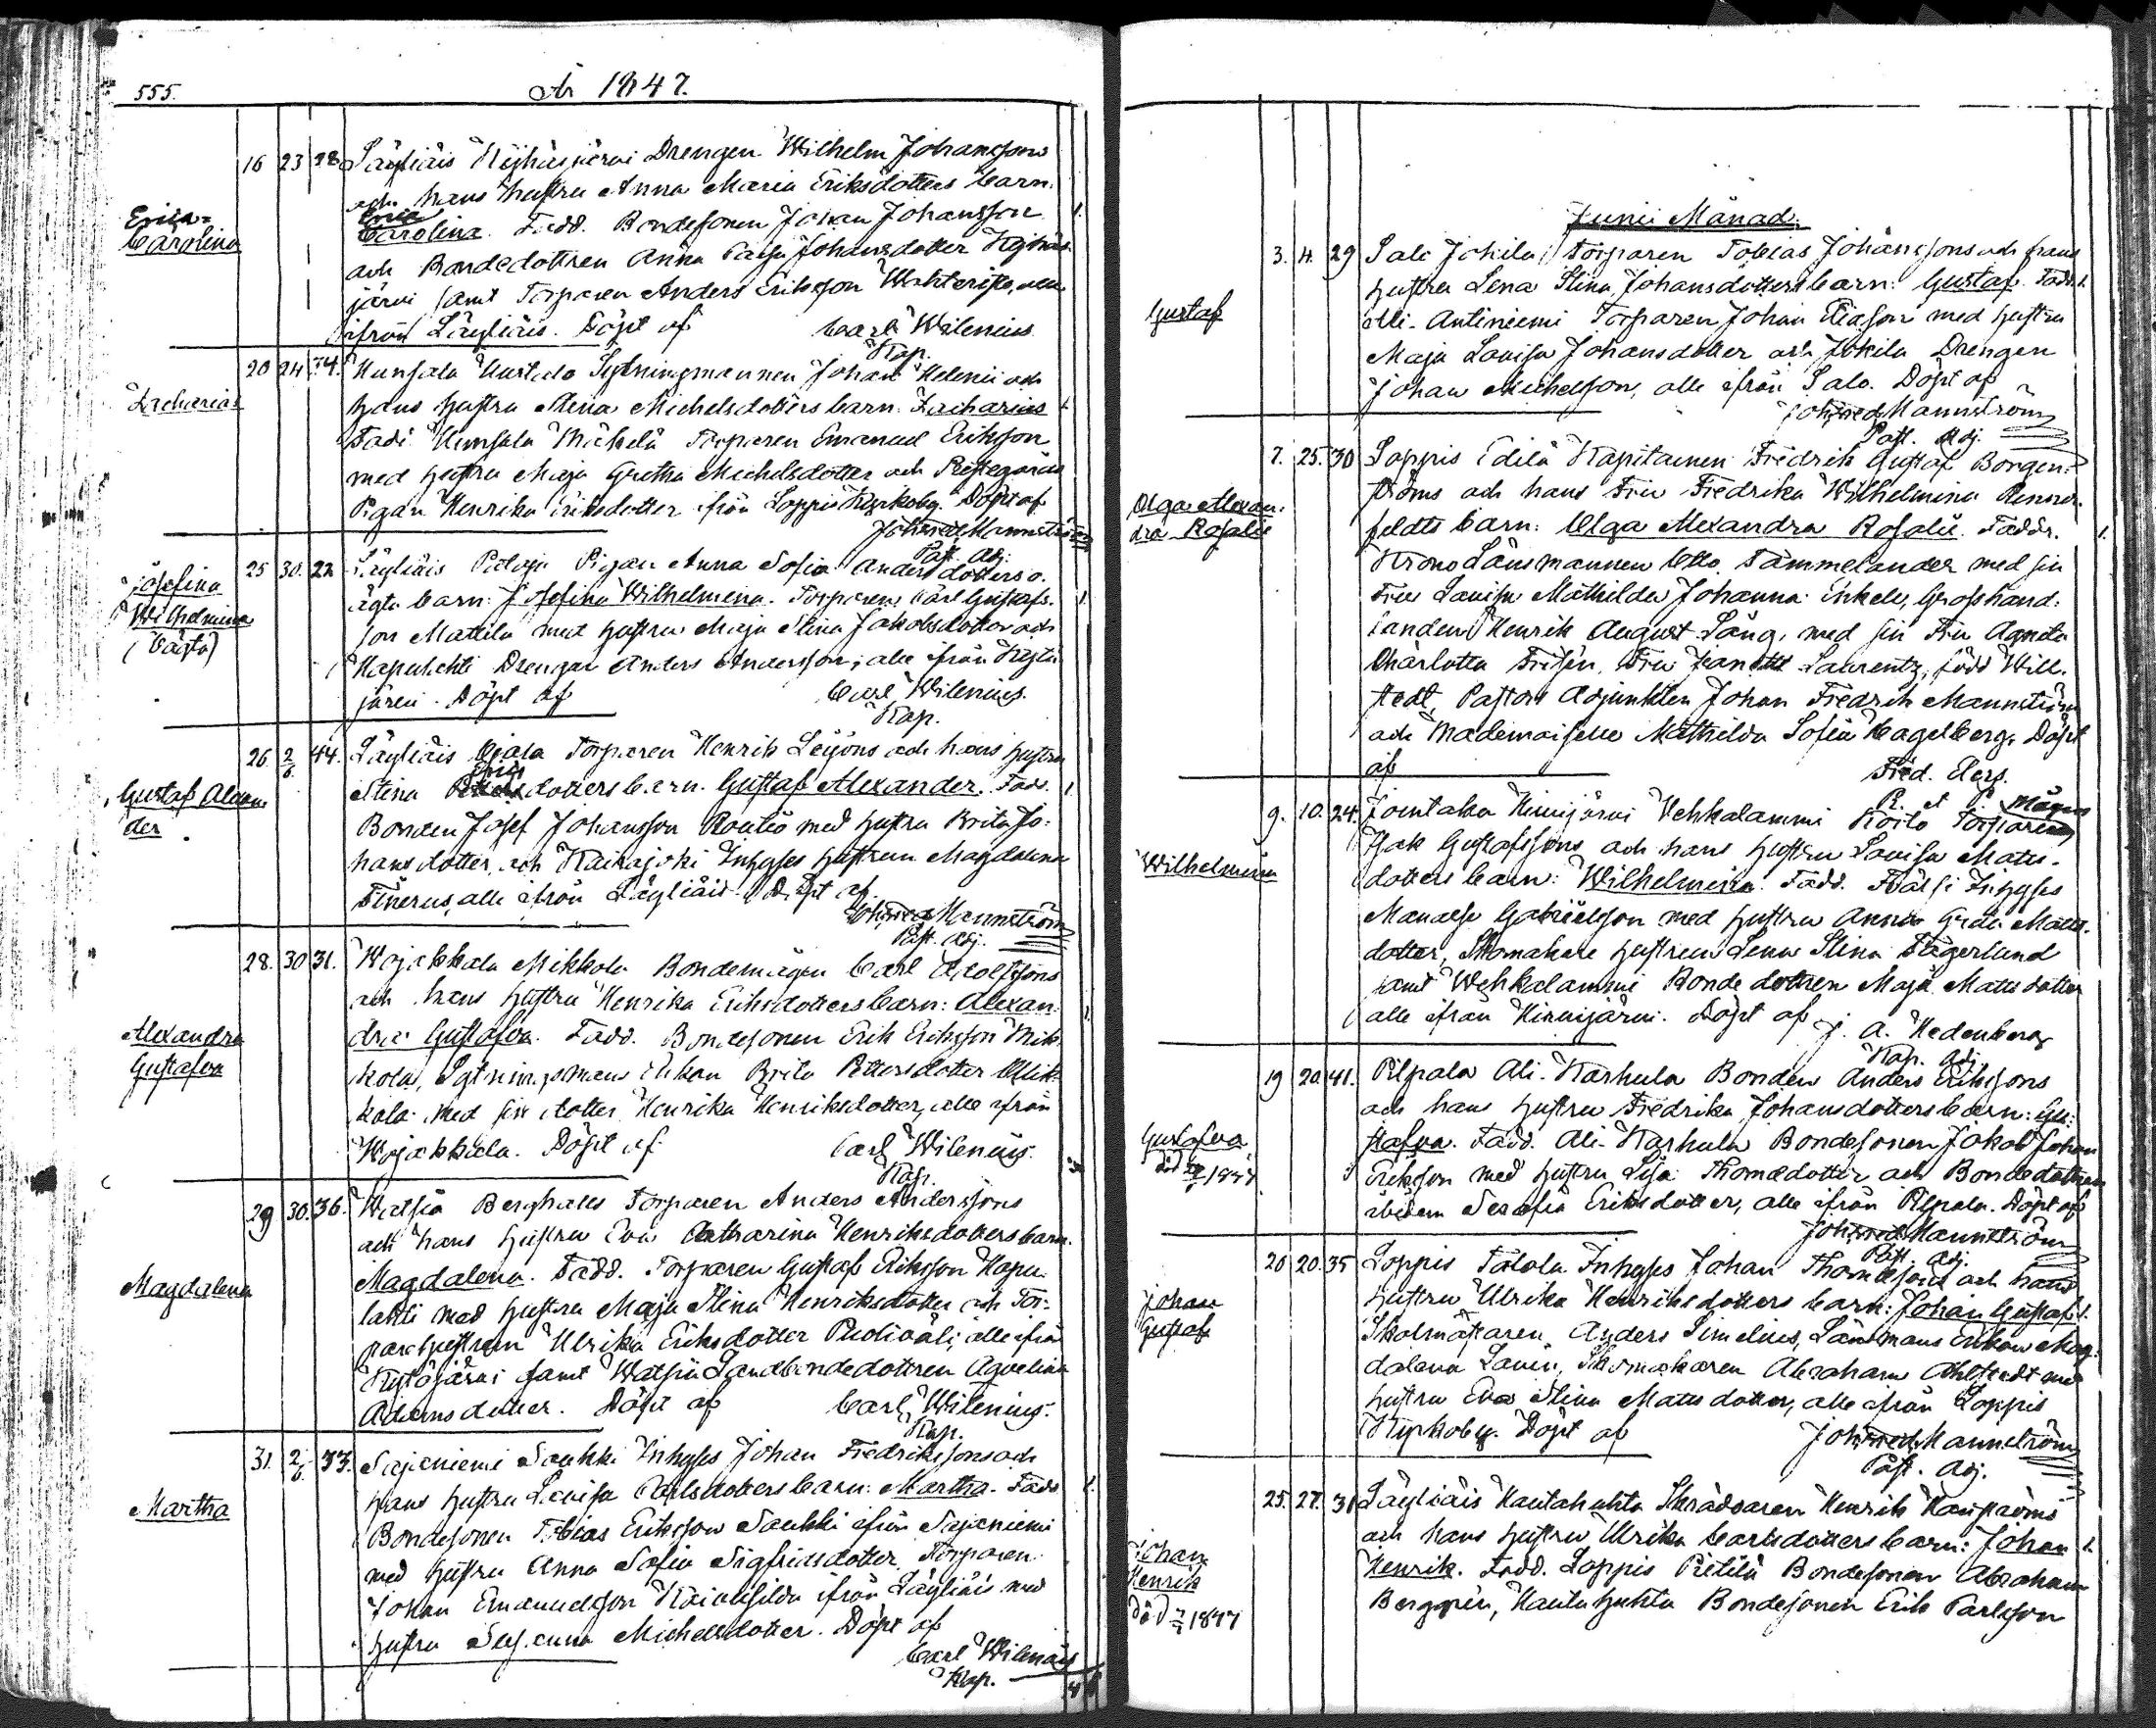 555.
År 1847.
16 23 28 Läyliäis Kyhäsjärvi Drengen Wilhelm Johanssons
och hans hustru Anna Maria Eriksdotters barn.
Erica-
Carolina
Erica
Carolina. Fadd. Bondesonen Johan Johansson 1.
och Bondedottren Anna Caisa Johansdotter
järvi samt Torparen Anders Eriksson, alla
ifrån Läyliäis. Döpt af Carl Wilenius
Kap.
20 24 34. Kunsala Uustalo Sytningmannen Johan Helenii och
Zacharias
hans hustru Stina Michelsdotters barn: Zacharias 1
Fadd: Kunsala Mickelä Torparen Emanuel Eriksson
med hustru Maja Gretha Michelsdotter och
Pigan Henrika Eriksdotter ifrån Loppis Kyrkoby. Döpt af
Joh. Fred. Mannström
Past. Adj.
25 30. 22 Läyliäis Pigan Anna Sofia Andersdotters o.
Josefina
Wilhelmina
(Oägta)
ägta barn: Josefina Wilhelmina. Torparen Carl Gustafs- 1
son Mattila med hustru Maja Stina Jakobsdotter och
Kapulahti Drengen Anders Andersson, alla ifrån Kytö
järvi. Döpt af Carl Wilenius.
Kap.
26 2/6. 44. Läyliäis Ojala Torparen Henrik Leijons och hans hustru
Gustaf Alexan
der
Stina Ericsdotters barn. Gustaf Alexander. Fadd. 1
Bonden Josef Johansson Routio med hustru Brita Jo-
hansdotter och Inhyses hustrun Magdalena
alla ifrån Läyliäis. Döpt af
Joh. Fred. Mannström
Past. Adj.
28. 30 31. Wojakkala Mikkola Bondemågen Carl Adolfssons
och hans hustru Henrika Eriksdotters barn: Alexan
Alexandra
Gustafva
dra Gustafva. Fadd. Bondesonen Erik Eriksson Mik-
kola, Sytningsmans Enkan Brita Pettersdotter Mik-
kola med sin dotter Henrika Henriksdotter, alla ifrån
Wojakkala. Döpt af Carl Wilenius.
Kap.
29 30. 36. Watsia Berghälls Torparen Anders Anderssons
och hans hustru Eva Catharina Henriksdotters barn.
Magdalena
Magdalena. Fadd. Torparen Gustaf Eriksson Kapu-
lahti med hustru Maja Stina Henriksdotter och Tor-
parehustrun Ulrika Eriksdotter Puoliväli, alla ifrån
Kytöjärvi samt Watsia Landbondedottren Agvelina
Adamsdotter. Döpt af Carl Wilenius.
Kap.
31. 2/6. 33. Sajaniemi Saukki Inhyses Johan Fredrikssons och
Martha
hans hustru Lovisa Carlsdotters barn: Martha. Fadd 1.
Bondesonen Tobias Eriksson Saukki ifrån Sajaniemi
med hustru Anna Sofia Sigfridsdotter Torparen
Johan Emanuelsson ifrån Läyliäis med
hustru Susanna Michelsdotter. Döpt af
Carl Wilenius
Kap.
Junii Månad.
3. 4. 29 Salo Jokila Torparen Tobias Johanssons och hans
Gustaf
hustru Lena Stina Johansdotters barn: Gustaf. Fadd. 1.
Ali-Antiniemi Torparen Johan Eliasson med hustru
Maja Lovisa Johansdotter och Jokila Drengen
Johan Michelsson, alla ifrån Salo. Döpt af
Joh. Fred. Mannström
Past. Adj.
7. 25. 30 Loppis Edilä Kapitainen Fredrik Gustaf Borgen-
ströms och hans Fru Fredrika Wilhelmina Renner-
Olga Alexan-
dra Rosalie
feldts barn: Olga Alexandra Rosalie. Faddr. 1.
Krono Länsmannen Otto Tammelander med sin
Fru Lovisa Mathilda Johanna Enkell, Grosshand-
landen Henrik August Lång, med sin Fru Agneta
Charlotta Frisén, Fru Jeanette Laurentz, född Will-
stedt, Pastors Adjunkten Johan Fredrik Mannström
och Mademoiselle Mathilda Sofia Hagelberg. Döpt
af Fred. Elers.
P. et P.
9. 10. 24. Joentaka Hirvijärvi Vehkalammi Torparemågens
Isak Gustafssons och hans hustru Lovisa Matts-
Wilhelmina
dotters barn: Wilhelmina. Fadd. Inhyses
Manasse Gabrielsson med hustru Anna Greta Matts-
dotter, Skomakare hustrun Lena Stina Fagerlund
samt Wehkalammi Bonde dottren Maja Mattsdotter
alla ifrån Hirvijärvi. Döpt af J. A. Hedenberg
Kap. Adj.
19 20. 41. Pilpala Ali-Karhula Bonden Anders Erikssons
och hans hustru Fredrika Johansdotters barn: Gu-
Gustafva
död 1847
stafva. Fadd. Ali-Karhula Bondesonen Jakob Johan
Eriksson med hustru Lisa Thomasdotter och Bondedottren
ibidem Serafia Eriksdotter, alla ifrån Pilpala. Döpt af
Joh. Fred. Mannström
Past. Adj.
20 20. 35 Loppis Talola Inhyses Johan Thomassons och hans
Johan
Gustaf
hustru Ulrika Henriksdotters barn: Johan Gustaf 1.
Skolmästaren Anders Simelius, Länsmans Enkan Mag-
dalena Lavin, Skomakaren Abraham Ahlstedt med
hustru Eva Stina Mattsdotter, alla ifrån Loppis
Kyrkoby. Döpt af Joh. Fred. Mannström
Past. Adj.
25. 27. 31 Läyliäis Hautahuhta Skräddaren Henrik
och hans hustru Ulrika Carlsdotters barn: Johan 1.
Johan
Henrik
död 1847
Henrik. Fadd. Loppis Pietilä Bondesonen Abraham
Berggrén, Hautahuhta Bondesonen Erik Carlsson